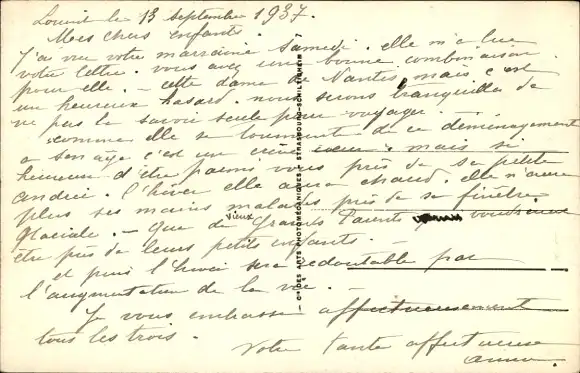 Lourit le 13 septembre 1937.
Mes chers enfants.
J'ai vu votre marraine samedi. elle m'a lue
votre lettre. vous avez une bonne combinaison
pour elle. - cette dame de Nantes, mais c'est
un heureux hasard. nous serons tranquilles de
ne pas la savoir seule pour voyager.
comme elle se tourmente de ce déménagement
a son age c'est un mais si
heureuse d'être parmi vous près de sa petite
andrée. l'hiver elle aura chaud. elle n'aura
plus ses mains malades près de sa fenêtre
glaciale. - que de vieux Grands Parents voudraient
être près de leurs petits enfants. -
et puis l'hiver sera redoutable par
l'augmentation de la vie. -
Je vous embrasse affectueusement
tous les trois.
Votre tante affectueuse
- Cie DES ARTS PHOTOMÉCANIQUES - STRASBOURG-SCHILTIGHEIM